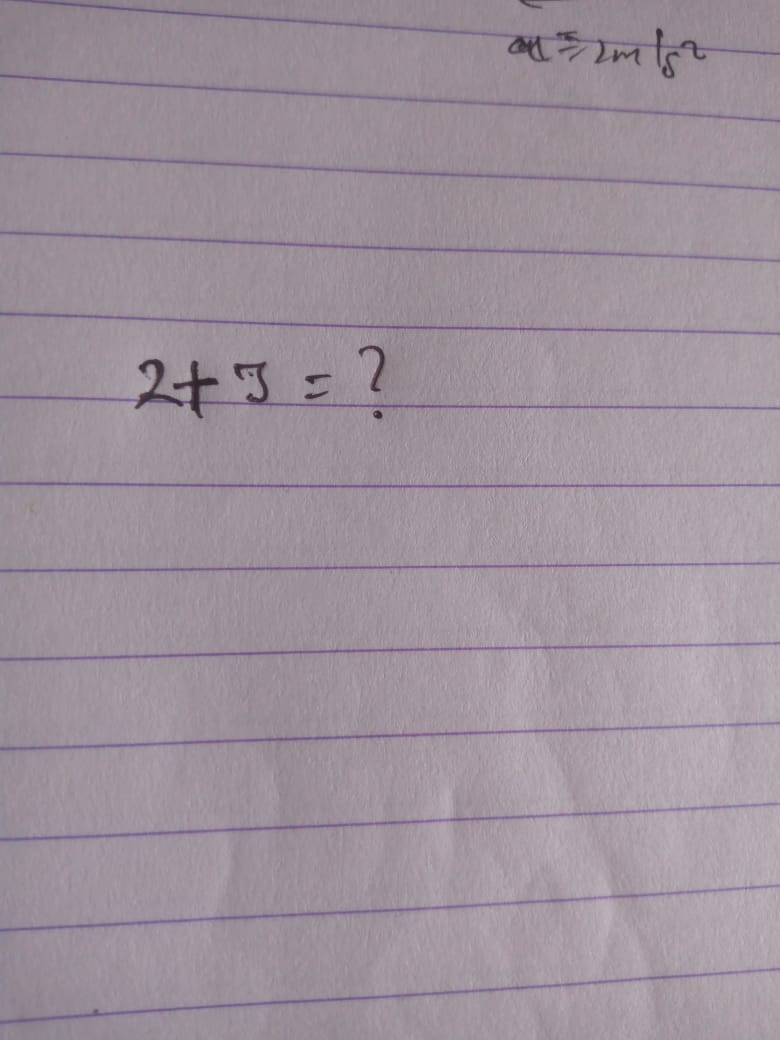 a = 2m/s²
2+3 = ?